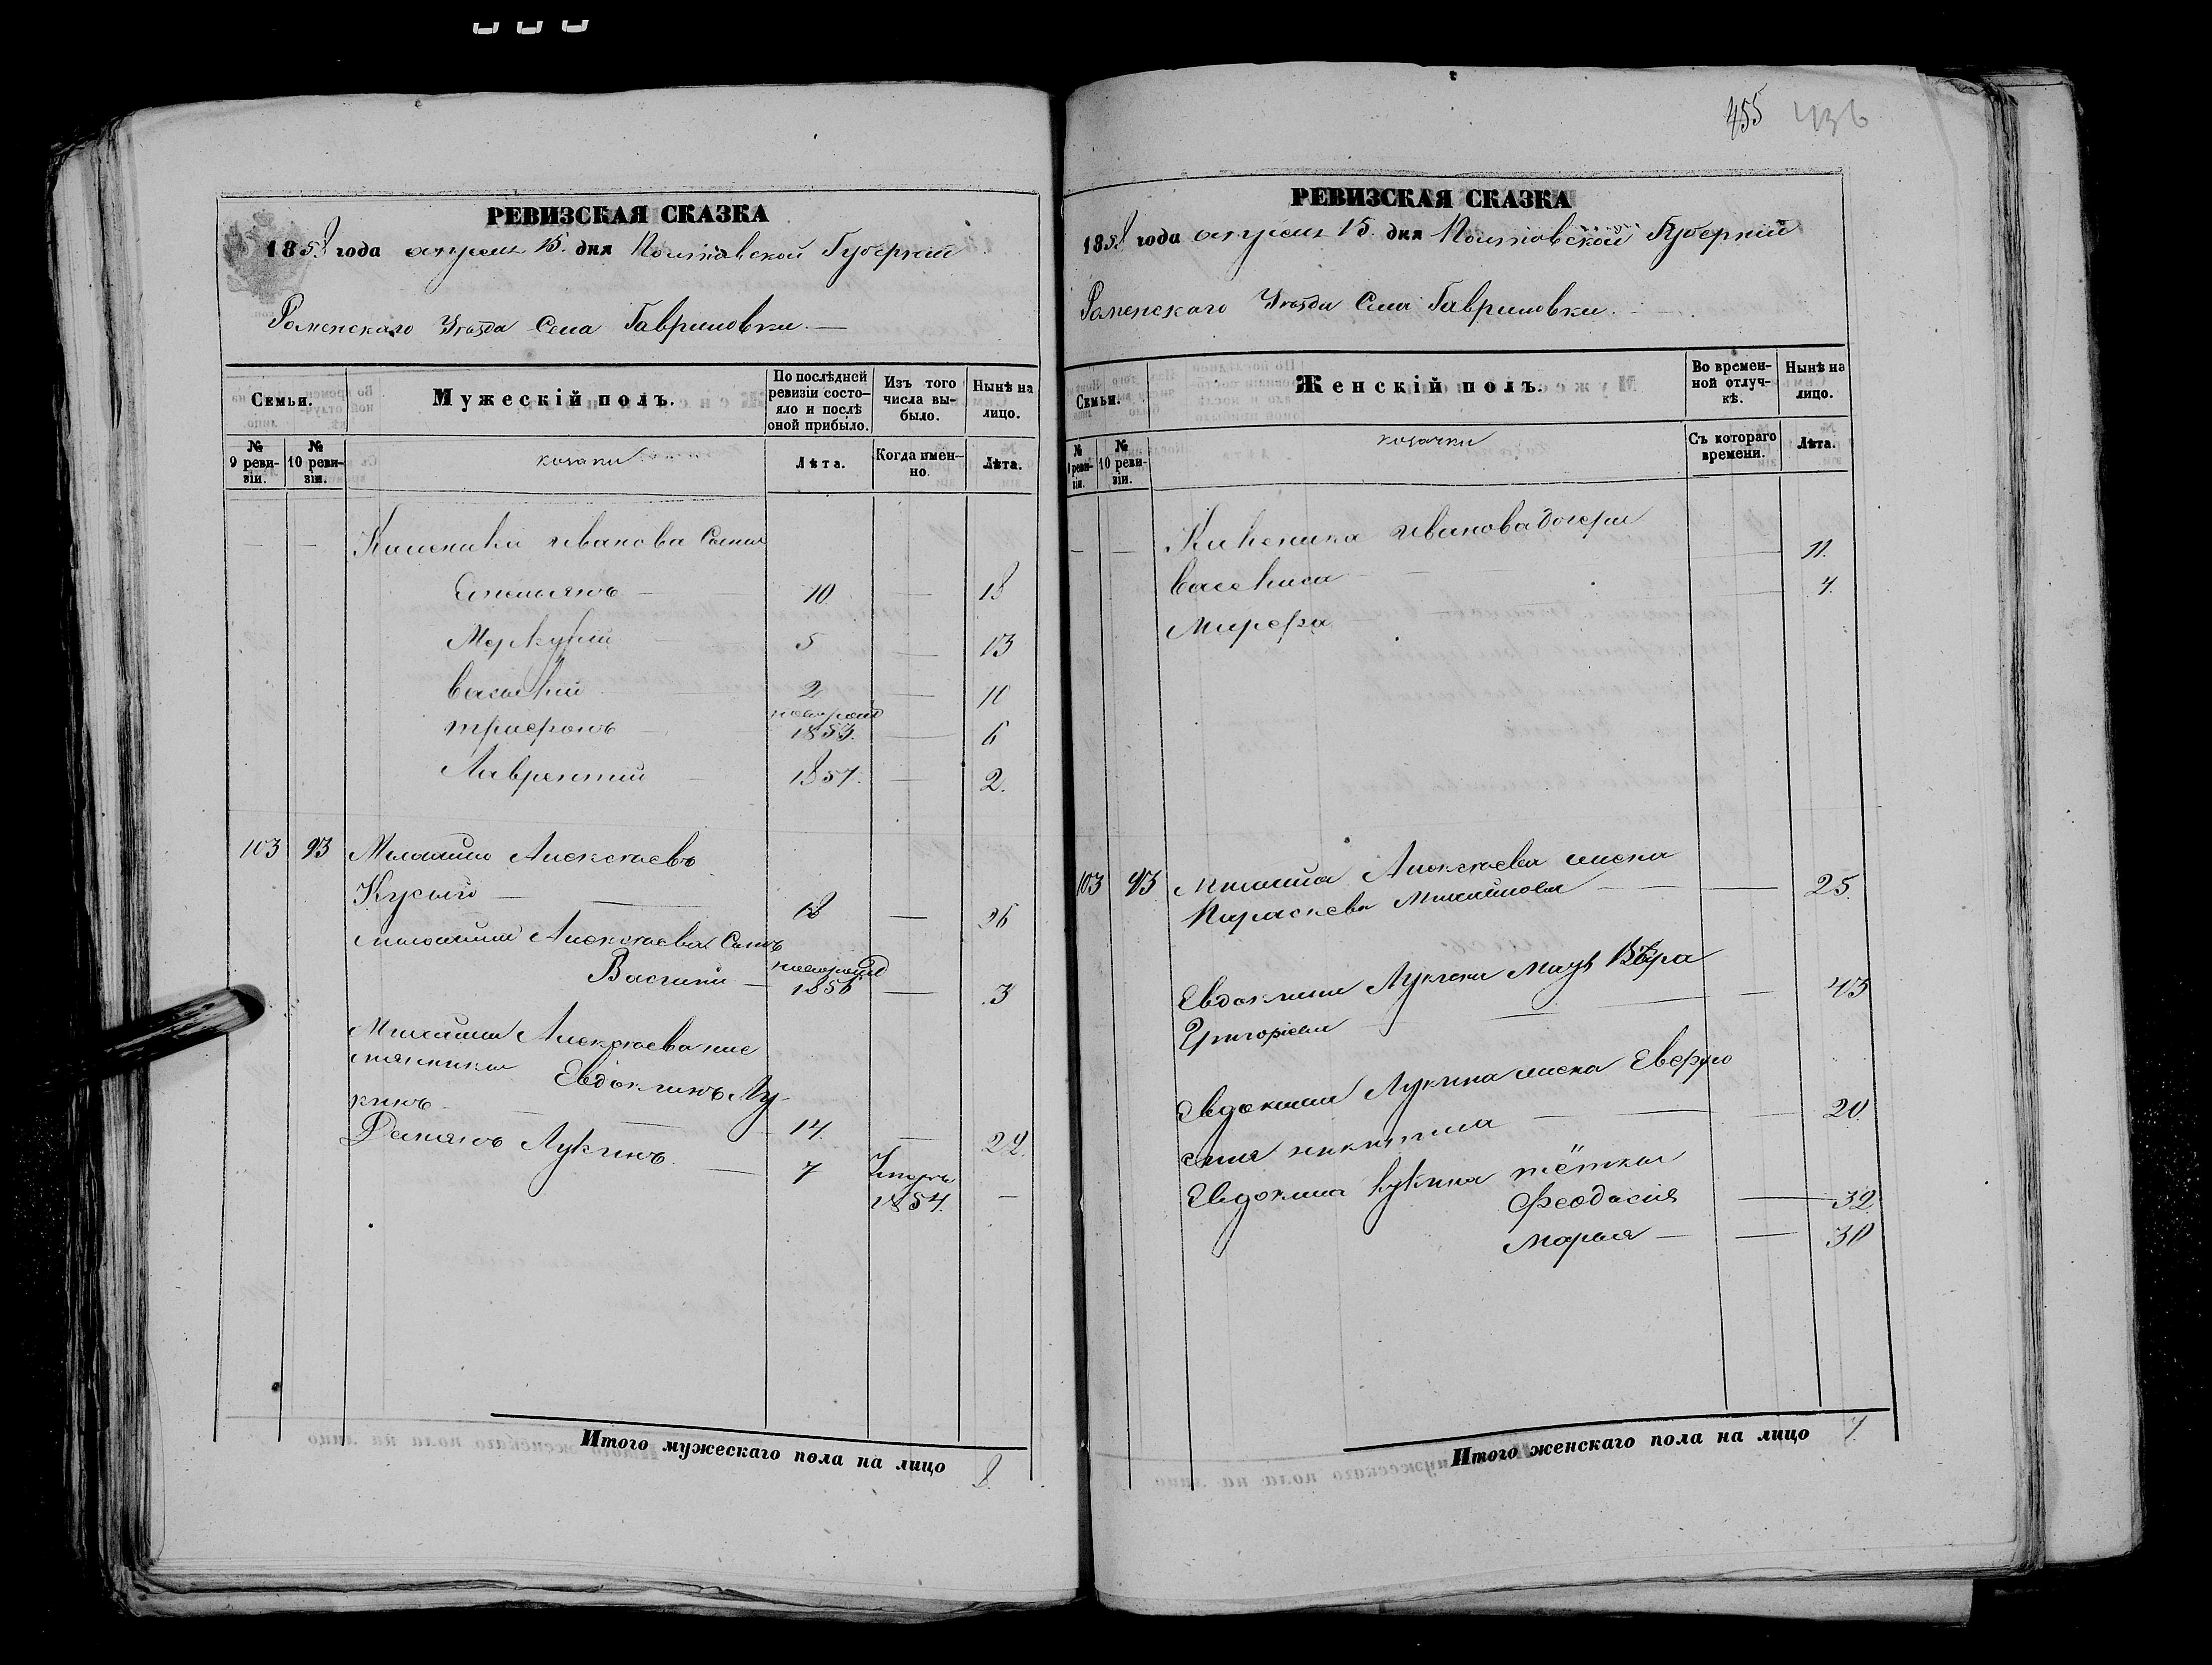 455 436
РЕВИЗСКАЯ СКАЗКА
1858 года апреля 15. дня Полтавской Губернии
Роменскаго Уезда Села Гавриловки.
Семьи.
Мужескій полъ.
По послѣдней ревизіи состояло и послѣ оной прибыло.
Изъ того числа выбыло.
Нынѣ на лицо.
№ 9 ревизіи.
№ 10 ревизіи.
козаки
Лѣта.
Когда именно.
Лѣта.
— — Ивана Сыны
Емельянъ — 10 — 18
Меркурий — 5 — 13
Василий — 2 — 10
новорожд
Трифонъ — 1853. — 6
Лаврентий — 1857. — 2.
103 93 Михаило Алексѣевъ
Кусый — 18 — 26
Михаила Алексѣева Сынъ
новорожд
Василий — 1856 — 3
Михаила Алексѣева пле
мянники Евдокимъ Лу-
кинъ — 14. — 22.
Демянъ Лукинъ. — 7 Умеръ
1854. —
Итого мужескаго пола на лицо 8.
РЕВИЗСКАЯ СКАЗКА
1858 года апреля 15. дня Полтавской Губернии
Роменскаго Уезда Села Гавриловки.
Семьи.
Женскій полъ.
Во временной отлучкѣ.
Нынѣ на лицо.
№ 9 ревизіи.
№ 10 ревизіи.
козачки
Съ котораго времени.
Лѣта.
— — Иванова дочери
Василиса — — 11.
— 4.
103 93 Михаила Алексѣева жена
Параскева Михайлова — — 25.
Евдокима Лукина Мать Вѣра
Григорьева — — 43
Евдокима Лукина жена Евфро
синия Никитина — — 20.
Евдокима Лукина тётки
Феодосия — 32
Марья — — 30
Итого женскаго пола на лицо 7.